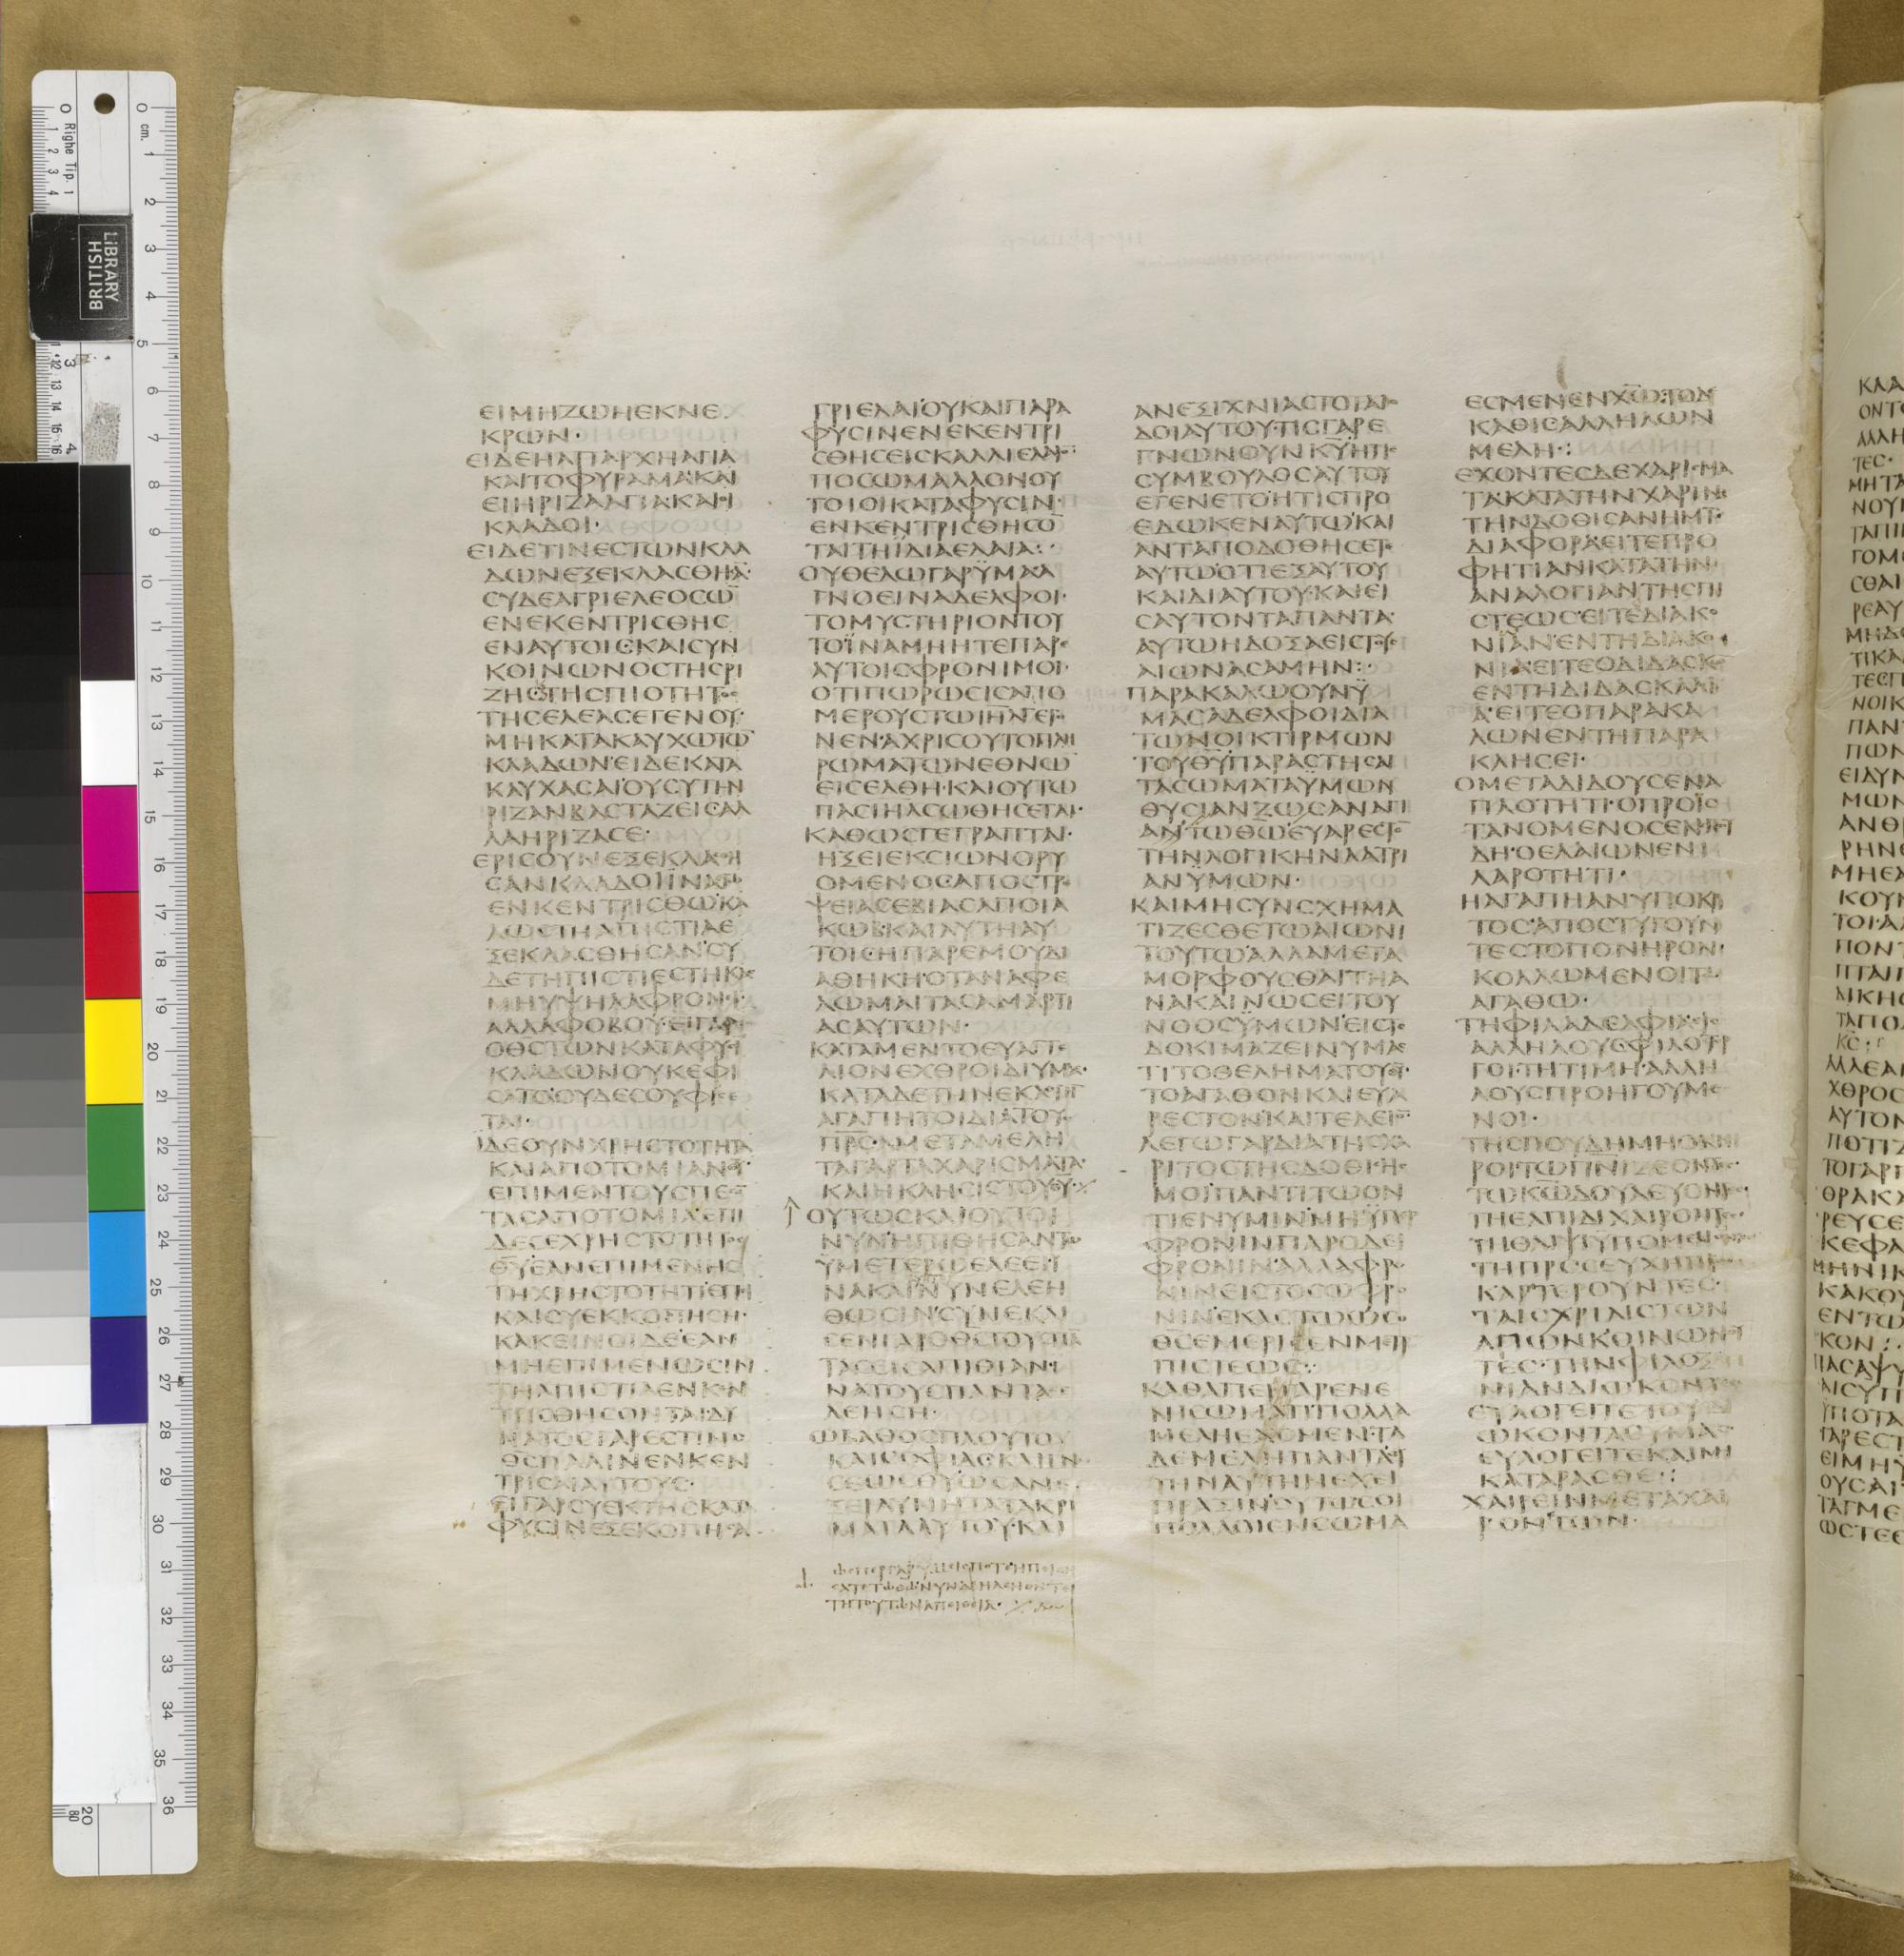 ΕΙΜΗΖΩΗΕΚΝΕ
ΚΡΩΝ·
ΕΙΔΕΗΑΠΑΡΧΗΑΓΙΑ
ΚΑΙΤΟΦΥΡΑΜΑΚΑΙ
ΕΙΗΡΙΖΑΑΓΙΑΚΑΙΟΙ
ΚΛΑΔΟΙ·
ΕΙΔΕΤΙΝΕΣΤΩΝΚΛΑ
ΔΩΝΕΞΕΚΛΑΣΘΗΣΑ̅
ΣΥΔΕΑΓΡΙΕΛΕΟΣΩ̅
ΕΝΕΚΕΝΤΡΙΣΘΗΣ
ΕΝΑΥΤΟΙΣΚΑΙΣΥΝ
ΚΟΙΝΩΝΟΣΤΗΣΡΙ
ΖΗΣΤΗΣΠΙΟΤΗΤΟΣ
ΤΗΣΕΛΕΑΣΕΓΕΝΟΥ·
ΜΗΚΑΤΑΚΑΥΧΩΤΩ̅
ΚΛΑΔΩΝΕΙΔΕΚΑΤΑ
ΚΑΥΧΑΣΑΙΟΥΣΥΤΗΝ
ΡΙΖΑΝΒΑΣΤΑΖΕΙΣΑΛ
ΛΑΗΡΙΖΑΣΕ·
ΕΡΙΣΟΥΝΕΞΕΚΛΑΣΘΗ
ΣΑΝΚΛΑΔΟΙΪΝΑΕΓΩ
ΕΝΚΕΝΤΡΙΣΘΩΚΑ
ΛΩΣΤΗΑΠΙΣΤΙΑΕ
ΞΕΚΛΑΣΘΗΣΑΝΣΥ
ΔΕΤΗΠΙΣΤΙΕΣΤΗΚΑΣ
ΜΗΥΨΗΛΑΦΡΟΝΕΙ·
ΑΛΛΑΦΟΒΟΥ·ΕΙΓΑΡ
ΟΘΣΤΩΝΚΑΤΑΦΥΣΙ̅
ΚΛΑΔΩΝΟΥΚΕΦΙ
ΣΑΤΟΟΥΔΕΣΟΥΦΙΣΕ
ΤΑΙ·
ΪΔΕΟΥΝΧΡΗΣΤΟΤΗΤΑ
ΚΑΙΑΠΟΤΟΜΙΑΝΘΥ
ΕΠΙΜΕΝΤΟΥΣΠΕΣΟ̅
ΤΑΣΑΠΟΤΟΜΙΑΕΠΙ
ΔΕΣΕΧΡΗΣΤΟΤΗΤΟΣ
ΘΥΕΑΝΕΠΙΜΕΝΗΣ
ΤΗΧΡΗΣΤΟΤΗΤΙΕΠΙ
ΚΑΙΣΥΕΚΚΟΠΗΣΗ·
ΚΑΚΕΙΝΟΙΔΕΕΑΝ
ΜΗΕΠΙΜΕΝΩΣΙΝ
ΤΗΑΠΙΣΤΙΑΕΝΚΕΝ
ΤΡΙΣΘΗΣΟΝΤΑΙΔΥ
ΝΑΤΟΣΓΑΡΕΣΤΙΝΟ
ΘΣΠΑΛΙΝΕΝΚΕΝ
ΤΡΙΣΑΙΑΥΤΟΥΣ·
ΕΙΓΑΡΣΥΕΚΤΗΣΚΑΤΑ
ΦΥΣΙΝΕΞΕΚΟΠΗΣΑ
ΓΡΙΕΛΑΙΟΥΚΑΙΠΑΡΑ
ΦΥΣΙΝΕΝΕΚΕΝΤΡΙ
ΣΘΗΣΕΙΣΚΑΛΛΙΕΛΑΙΟ̅
ΠΟΣΩΜΑΛΛΟΝΟΥ
ΤΟΙΟΙΚΑΤΑΦΥΣΙΝ
ΕΝΚΕΝΤΡΙΣΘΗΣΟ̅
ΤΑΙΤΗΪΔΙΑΕΛΑΙΑ:
ΟΥΘΕΛΩΓΑΡΫΜΑΣΑ
ΓΝΟΕΙΝΑΔΕΛΦΟΙ·
ΤΟΜΥΣΤΗΡΙΟΝΤΟΥ
ΤΟΪΝΑΜΗΗΤΕΠΑΡ
ΑΥΤΟΙΣΦΡΟΝΙΜΟΙ·
ΟΤΙΠΩΡΩΣΙΣΑΠΟ
ΜΕΡΟΥΣΤΩΙΗΛΓΕΓΟ
ΝΕΝΑΧΡΙΣΟΥΤΟΠΛΗ
ΡΩΜΑΤΩΝΕΘΝΩ̅
ΕΙΣΕΛΘΗ·ΚΑΙΟΥΤΩ
ΠΑΣΙΗΛΣΩΘΗΣΕΤΑΙ·
ΚΑΘΩΣΓΕΓΡΑΠΤΑΙ·
ΗΞΕΙΕΚΣΙΩΝΟΡΥ
ΟΜΕΝΟΣΑΠΟΣΤΡΕ
ΨΕΙΑΣΕΒΙΑΣΑΠΟΙΑ
ΚΩΒΚΑΙΑΥΤΗΑΥ
ΤΟΙΣΗΠΑΡΕΜΟΥΔΙ
ΑΘΗΚΗΟΤΑΝΑΦΕ
ΛΩΜΑΙΤΑΣΑΜΑΡΤΙ
ΑΣΑΥΤΩΝ·
ΚΑΤΑΜΕΝΤΟΕΥΑΓΓΕ
ΛΙΟΝΕΧΘΡΟΙΔΙΥΜΑΣ·
ΚΑΤΑΔΕΤΗΝΕΚΛΟΓΗ
ΑΓΑΠΗΤΟΙΔΙΑΤΟΥΣ
ΠΡΣ·ΑΜΕΤΑΜΕΛΗ
ΤΑΓΑΡΤΑΧΑΡΙΣΜΑΤΑ·
ΚΑΙΗΚΛΗΣΙΣΤΟΥΘΥ·
ΟΥΤΩΣΚΑΙΟΥΤΟΙ
ΝΥΝΗΠΙΘΗΣΑΝΤΩ
ΥΜΕΤΕΡΩΕΛΕΕΙΪ
ΝΑΚΑΙΝΥΝΕΛΕΗ
ΘΩΣΙΝ·ΣΥΝΕΚΛΙ
ΣΕΝΓΑΡΟΘΣΤΟΥΣΠΑ̅
ΤΑΣΕΙΣΑΠΙΘΙΑΝΙ
ΝΑΤΟΥΣΠΑΝΤΑΣΕ
ΛΕΗΣΗ·
ΩΒΑΘΟΣΠΛΟΥΤΟΥ
ΚΑΙΣΟΦΙΑΣΚΑΙΓΝΩ
ΣΕΩΣΘΥΩΣΑΝΕ
ΞΕΡΑΥΝΗΤΑΤΑΚΡΙ
ΜΑΤΑΑΥΤΟΥ·ΚΑΙ
ΩΣΠΕΡΓΑΡΥΜΕΙΣΠΟΤΕΗΠΕΙΘΗ
ΣΑΤΕΤΩΘΩΝΥΝΔΕΗΛΕΗΘΗΤΕ
ΤΗΤΟΥΤΩΝΑΠΕΙΘΕΙΑ·
ΑΝΕΞΙΧΝΙΑΣΤΟΙΑΙΟ
ΔΟΙΑΥΤΟΥ·ΤΙΣΓΑΡΕ
ΓΝΩΝΟΥΝΚΥΗΤΙΣ
ΣΥΜΒΟΥΛΟΣΑΥΤΟΥ
ΕΓΕΝΕΤΟΗΤΙΣΠΡΟ
ΕΔΩΚΕΝΑΥΤΩΚΑΙ
ΑΝΤΑΠΟΔΟΘΗΣΕΤΑΙ
ΑΥΤΩΟΤΙΕΞΑΥΤΟΥ
ΚΑΙΔΙΑΥΤΟΥ·ΚΑΙΕΙ
ΣΑΥΤΟΝΤΑΠΑΝΤΑ·
ΑΥΤΩΗΔΟΞΑΕΙΣΤΟΥΣ
ΑΙΩΝΑΣΑΜΗΝ:
ΠΑΡΑΚΑΛΩΟΥΝΫ
ΜΑΣΑΔΕΛΦΟΙΔΙΑ
ΤΩΝΟΙΚΤΙΡΜΩΝ
ΤΟΥΘΥΠΑΡΑΣΤΗΣΑΙ
ΤΑΣΩΜΑΤΑΫΜΩΝ
ΘΥΣΙΑΝΖΩΣΑΝΑΓΙ
ΑΝΤΩΘΩΕΥΑΡΕΣΤΟ̅
ΤΗΝΛΟΓΙΚΗΝΛΑΤΡΙ
ΑΝΥΜΩΝ·
ΚΑΙΜΗΣΥΝΣΧΗΜΑ
ΤΙΖΕΣΘΕΤΩΑΙΩΝΙ
ΤΟΥΤΩΑΛΛΑΜΕΤΑ
ΜΟΡΦΟΥΣΘΑΙΤΗΑ
ΝΑΚΑΙΝΩΣΕΙΤΟΥ
ΝΟΟΣΫΜΩΝΕΙΣΤΟ
ΔΟΚΙΜΑΖΕΙΝΥΜΑΣ
ΤΙΤΟΘΕΛΗΜΑΤΟΥΘΥ
ΤΟΑΓΑΘΟΝΚΑΙΕΥΑ
ΡΕΣΤΟΝΚΑΙΤΕΛΕΙΟ̅
ΛΕΓΩΓΑΡΔΙΑΤΗΣΧΑ
ΡΙΤΟΣΤΗΣΔΟΘΙΣΗΣ
ΜΟΙΠΑΝΤΙΤΩΟΝ
ΤΙΕΝΥΜΙΝΜΗΫΠΕΡ
ΦΡΟΝΙΝΠΑΡΟΔΕΙ
ΦΡΟΝΙΝΑΛΛΑΦΡΟ
ΝΙΝΕΙΣΤΟΣΩΦΡΟ
ΝΙΝΕΚΑΣΤΩΩΣΟ
ΘΣΕΜΕΡΙΣΕΝΜΕΤΡΟ̅
ΠΙΣΤΕΩΣ:
ΚΑΘΑΠΕΡΓΑΡΕΝΕ
ΝΙΣΩΜΑΤΙΠΟΛΛΑ
ΜΕΛΗΕΧΟΜΕΝΤΑ
ΔΕΜΕΛΗΠΑΝΤΑΟΥ
ΤΗΝΑΥΤΗΝΕΧΕΙ
ΠΡΑΞΙΝΟΥΤΩΣΟΙ
ΠΟΛΛΟΙΕΝΣΩΜΑ
ΕΣΜΕΝΕΝΧΩ·ΤΟΔΕ
ΚΑΘΙΣΑΛΛΗΛΩΝ
ΜΕΛΗ:
ΕΧΟΝΤΕΣΔΕΧΑΡΙΣΜΑ
ΤΑΚΑΤΑΤΗΝΧΑΡΙΝ
ΤΗΝΔΟΘΙΣΑΝΗΜΙ̅
ΔΙΑΦΟΡΑΕΙΤΕΠΡΟ
ΦΗΤΙΑΝΚΑΤΑΤΗΝ
ΑΝΑΛΟΓΙΑΝΤΗΣΠΙ
ΣΤΕΩΣΕΙΤΕΔΙΑΚΟ
ΝΙΑΝΕΝΤΗΔΙΑΚΟ
ΝΙΑΕΙΤΕΟΔΙΔΑΣΚΩ̅
ΕΝΤΗΔΙΔΑΣΚΑΛΙ
Α·ΕΙΤΕΟΠΑΡΑΚΑ
ΛΩΝΕΝΤΗΠΑΡΑ
ΚΛΗΣΕΙ·
ΟΜΕΤΑΔΙΔΟΥΣΕΝΑ
ΠΛΟΤΗΤΙ·ΟΠΡΟΪΣ
ΤΑΝΟΜΕΝΟΣΕΝΣΠΟΥ
ΔΗ·ΟΕΛΑΙΩΝΕΝΙ
ΛΑΡΟΤΗΤΙ·
ΗΑΓΑΠΗΑΝΥΠΟΚΡΙ
ΤΟΣΑΠΟΣΤΥΓΟΥΝ
ΤΕΣΤΟΠΟΝΗΡΟΝ
ΚΟΛΛΩΜΕΝΟΙΤΩ
ΑΓΑΘΩ·
ΤΗΦΙΛΑΔΕΛΦΙΑΕΙΣ
ΑΛΛΗΛΟΥΣΦΙΛΟΣΤΡ
ΓΟΙΤΗΤΙΜΗΑΛΛΗ
ΛΟΥΣΠΡΟΗΓΟΥΜΕ
ΝΟΙ·
ΤΗΣΠΟΥΔΗΜΗΟΚΝΗ
ΡΟΙΤΩΠΝΙΖΕΟΝΤΕΣ
ΤΩΚΩΔΟΥΛΕΥΟΝΤΕΣ
ΤΗΕΛΠΙΔΙΧΑΙΡΟΝΤΕΣ
ΤΗΘΛΙΨΙΥΠΟΜΕΝΟΝΤΕΣ
ΤΗΠΡΟΣΕΥΧΗΠΡΟΣ
ΚΑΡΤΕΡΟΥΝΤΕΣ·
ΤΑΙΣΧΡΙΑΙΣΤΩΝ
ΑΓΙΩΝΚΟΙΝΩΝΟΥ̅
ΤΕΣ·ΤΗΝΦΙΛΟΞΕ
ΝΙΑΝΔΙΩΚΟΝΤΕΣ
ΕΥΛΟΓΕΙΤΕΤΟΥΣΔΙ
ΩΚΟΝΤΑΣΥΜΑΣ
ΕΥΛΟΓΕΙΤΕΚΑΙΜΗ
ΚΑΤΑΡΑΣΘΕ:
ΧΑΙΡΕΙΝΜΕΤΑΧΑΙ
ΡΟΝΤΩΝ·